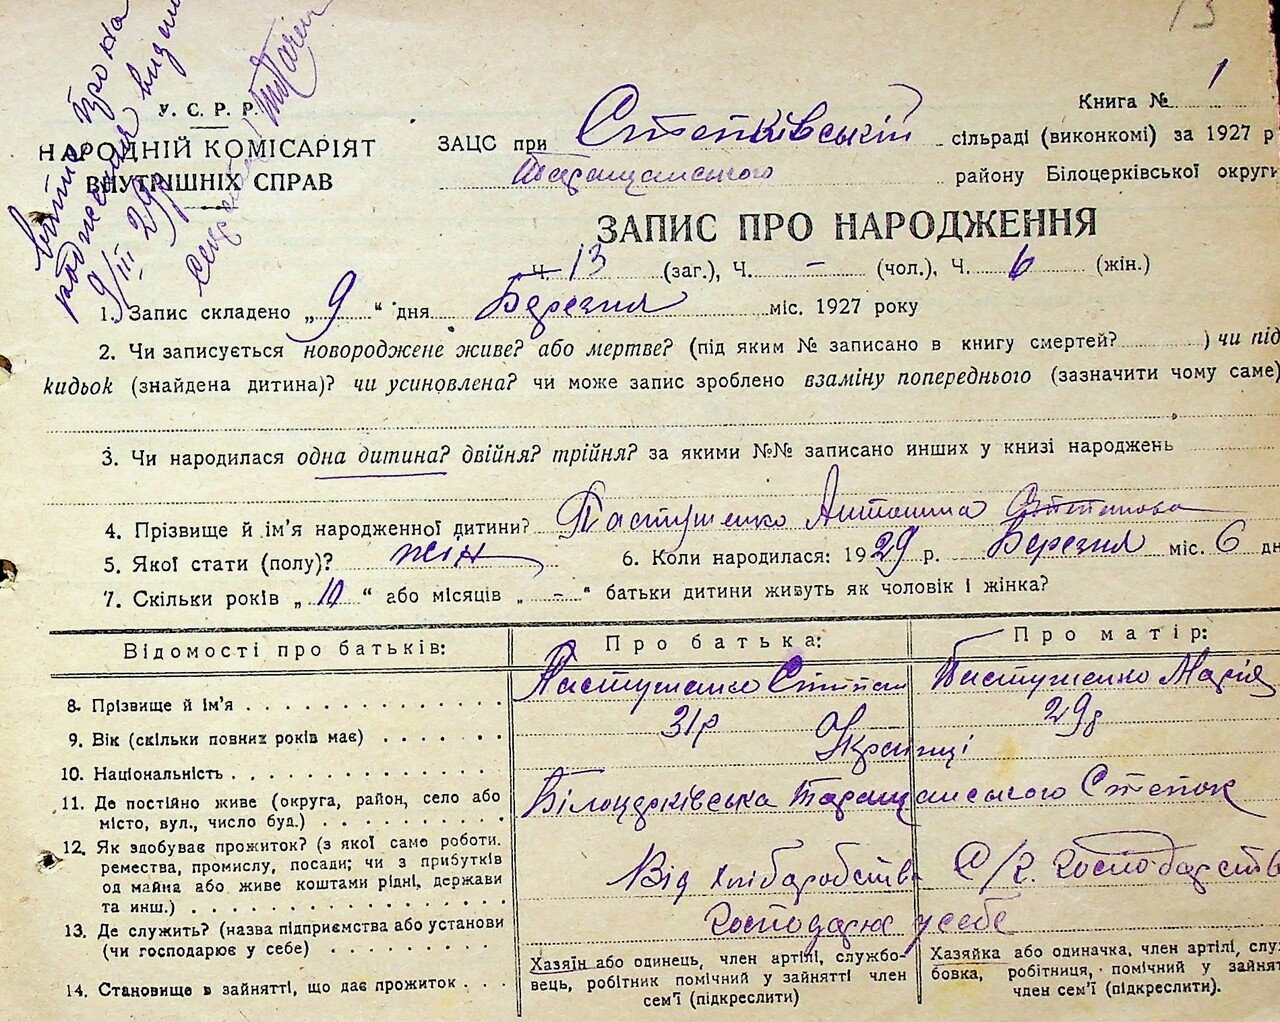 13
витяг про на
родження видано
9/III 29 р.
Секретар
У. С. Р. Р.
НАРОДНІЙ КОМІСАРІЯТ
ВНУТРІШНІХ СПРАВ
Книга № 1
ЗАЦС при Степківській сільраді (виконкомі) за 1927 р
Таращанського району Білоцерківської округи
ЗАПИС ПРО НАРОДЖЕННЯ
Ч. 13 (заг.), Ч. - (чол.), Ч. 6 (жін.)
1. Запис складено „ 9 “ дня Березня міс. 1927 року
2. Чи записується новороджене живе? або мертве? (під яким № записано в книгу смертей? ) чи під
кидьок (знайдена дитина)? чи усиновлена? чи може запис зроблено взаміну попереднього (зазначити чому саме)
3. Чи народилася одна дитина? двійня? трійня? за якими №№ записано инших у книзі народжень
4. Прізвище й ім'я народженної дитини? Пастушенко Антонина Степанова
5. Якої стати (полу)? жін 6. Коли народилася: 1929 р. Березня міс. 6 дн
7. Скільки років „ 10 “ або місяців „ - “ батьки дитини живуть як чоловік і жінка?
Відомості про батьків: Про батька: Про матір:
8. Прізвище й ім'я Пастушенко Степан Пастушенко Марія
9. Вік (скільки повних років має) 31р 29р
10. Національність Українці
11. Де постійно живе (округа, район, село або
місто, вул., число буд.) Білоцерківська Таращанського Степок
12. Як здобуває прожиток? (з якої саме роботи.
ремества, промислу, посади; чи з прибутків
од майна або живе коштами рідні, держави
та инш.) Від хліборобства С/г. господарства
13. Де служить? (назва підприємства або установи
(чи господарює у себе) Господарює у себе
14. Становище в зайнятті, що дає прожиток
Хазяїн або одинець, член артілі, службо-
вець, робітник помічний у зайнятті член
сем'ї (підкреслити)
Хазяйка або одиначка, член артілі, служ
бовка, робітниця, помічний у зайнят
член сем'ї (підкреслити).